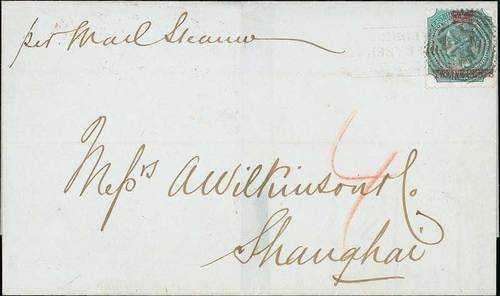 per Mail Steamer
Messrs A Wilkinson & Co.
4
Shanghai